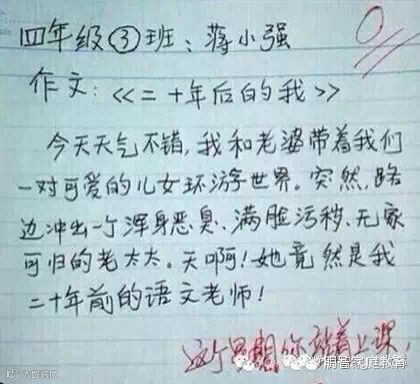 四年级③班：蒋小强
0
作文：<<二十年后的我>>
今天天气不错，我和老婆带着我们
一对可爱的儿女环游世界。突然，路
边冲出一个浑身恶臭、满脸污秽、无家
可归的老太太。天啊！她竟然是我
二十年前的语文老师！
这个星期，你站着上课，
家庭教育
大数跨境